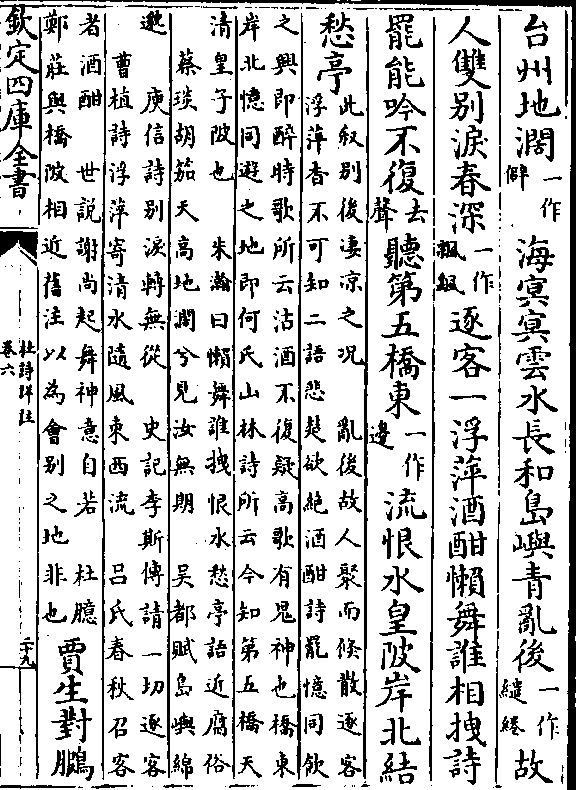 台州地闊一作僻海㝠㝠雲水長和島嶼青亂後一作繾綣故
人雙别淚春深一作飄飖逐客一浮萍酒酣懶舞誰相拽詩
罷能吟不復去聲聽第五橋東一作邊流恨水皇陂岸北結
愁亭此叙别後凄凉之况 亂後故人聚而倏散逐客
浮萍杳不可知二語悲楚欲絶酒酣詩罷憶同飲
之興即醉時歌所云沽酒不復疑高歌有鬼神也橋東
岸北憶同遊之地即何氏山林詩所云今知第五橋天
清皇子陂也 朱瀚曰懶舞誰拽恨水愁亭語近腐俗
蔡琰胡笳天高地濶兮見汝無期 吴都賦島嶼綿
邈 庾信詩别淚轉無從 史記李斯傳請一切逐客
曹植詩浮萍寄清水隨風東西流 吕氏春秋召客
者酒酣 世説謝尚起舞神意自若 杜臆
鄭莊與橋陂相近舊注以為會别之地非也 賈生對鵩
欽定四庫全書
杜詩詳註
卷六
二十九